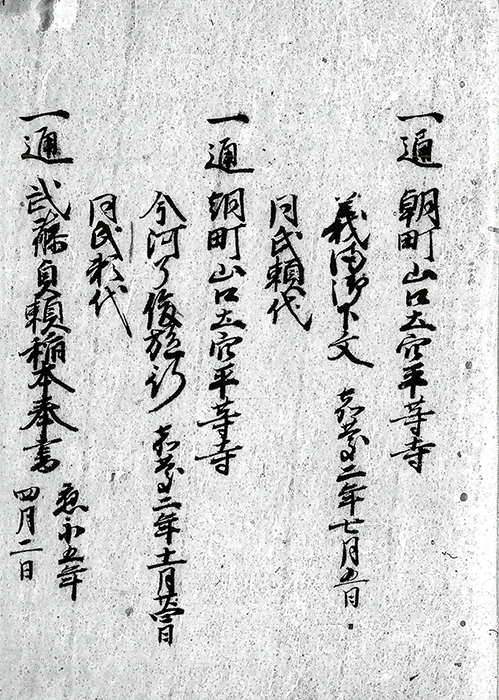 一通 朝町山口土穴平等寺
義満御下文 嘉慶二年七月五日
同氏頼代
一通 朝町山口土穴平等寺
今河了俊施行 嘉慶二年十一月廿四日
同氏頼代
一通 武藤貞頼稲本奉書 応永五年
四月二日